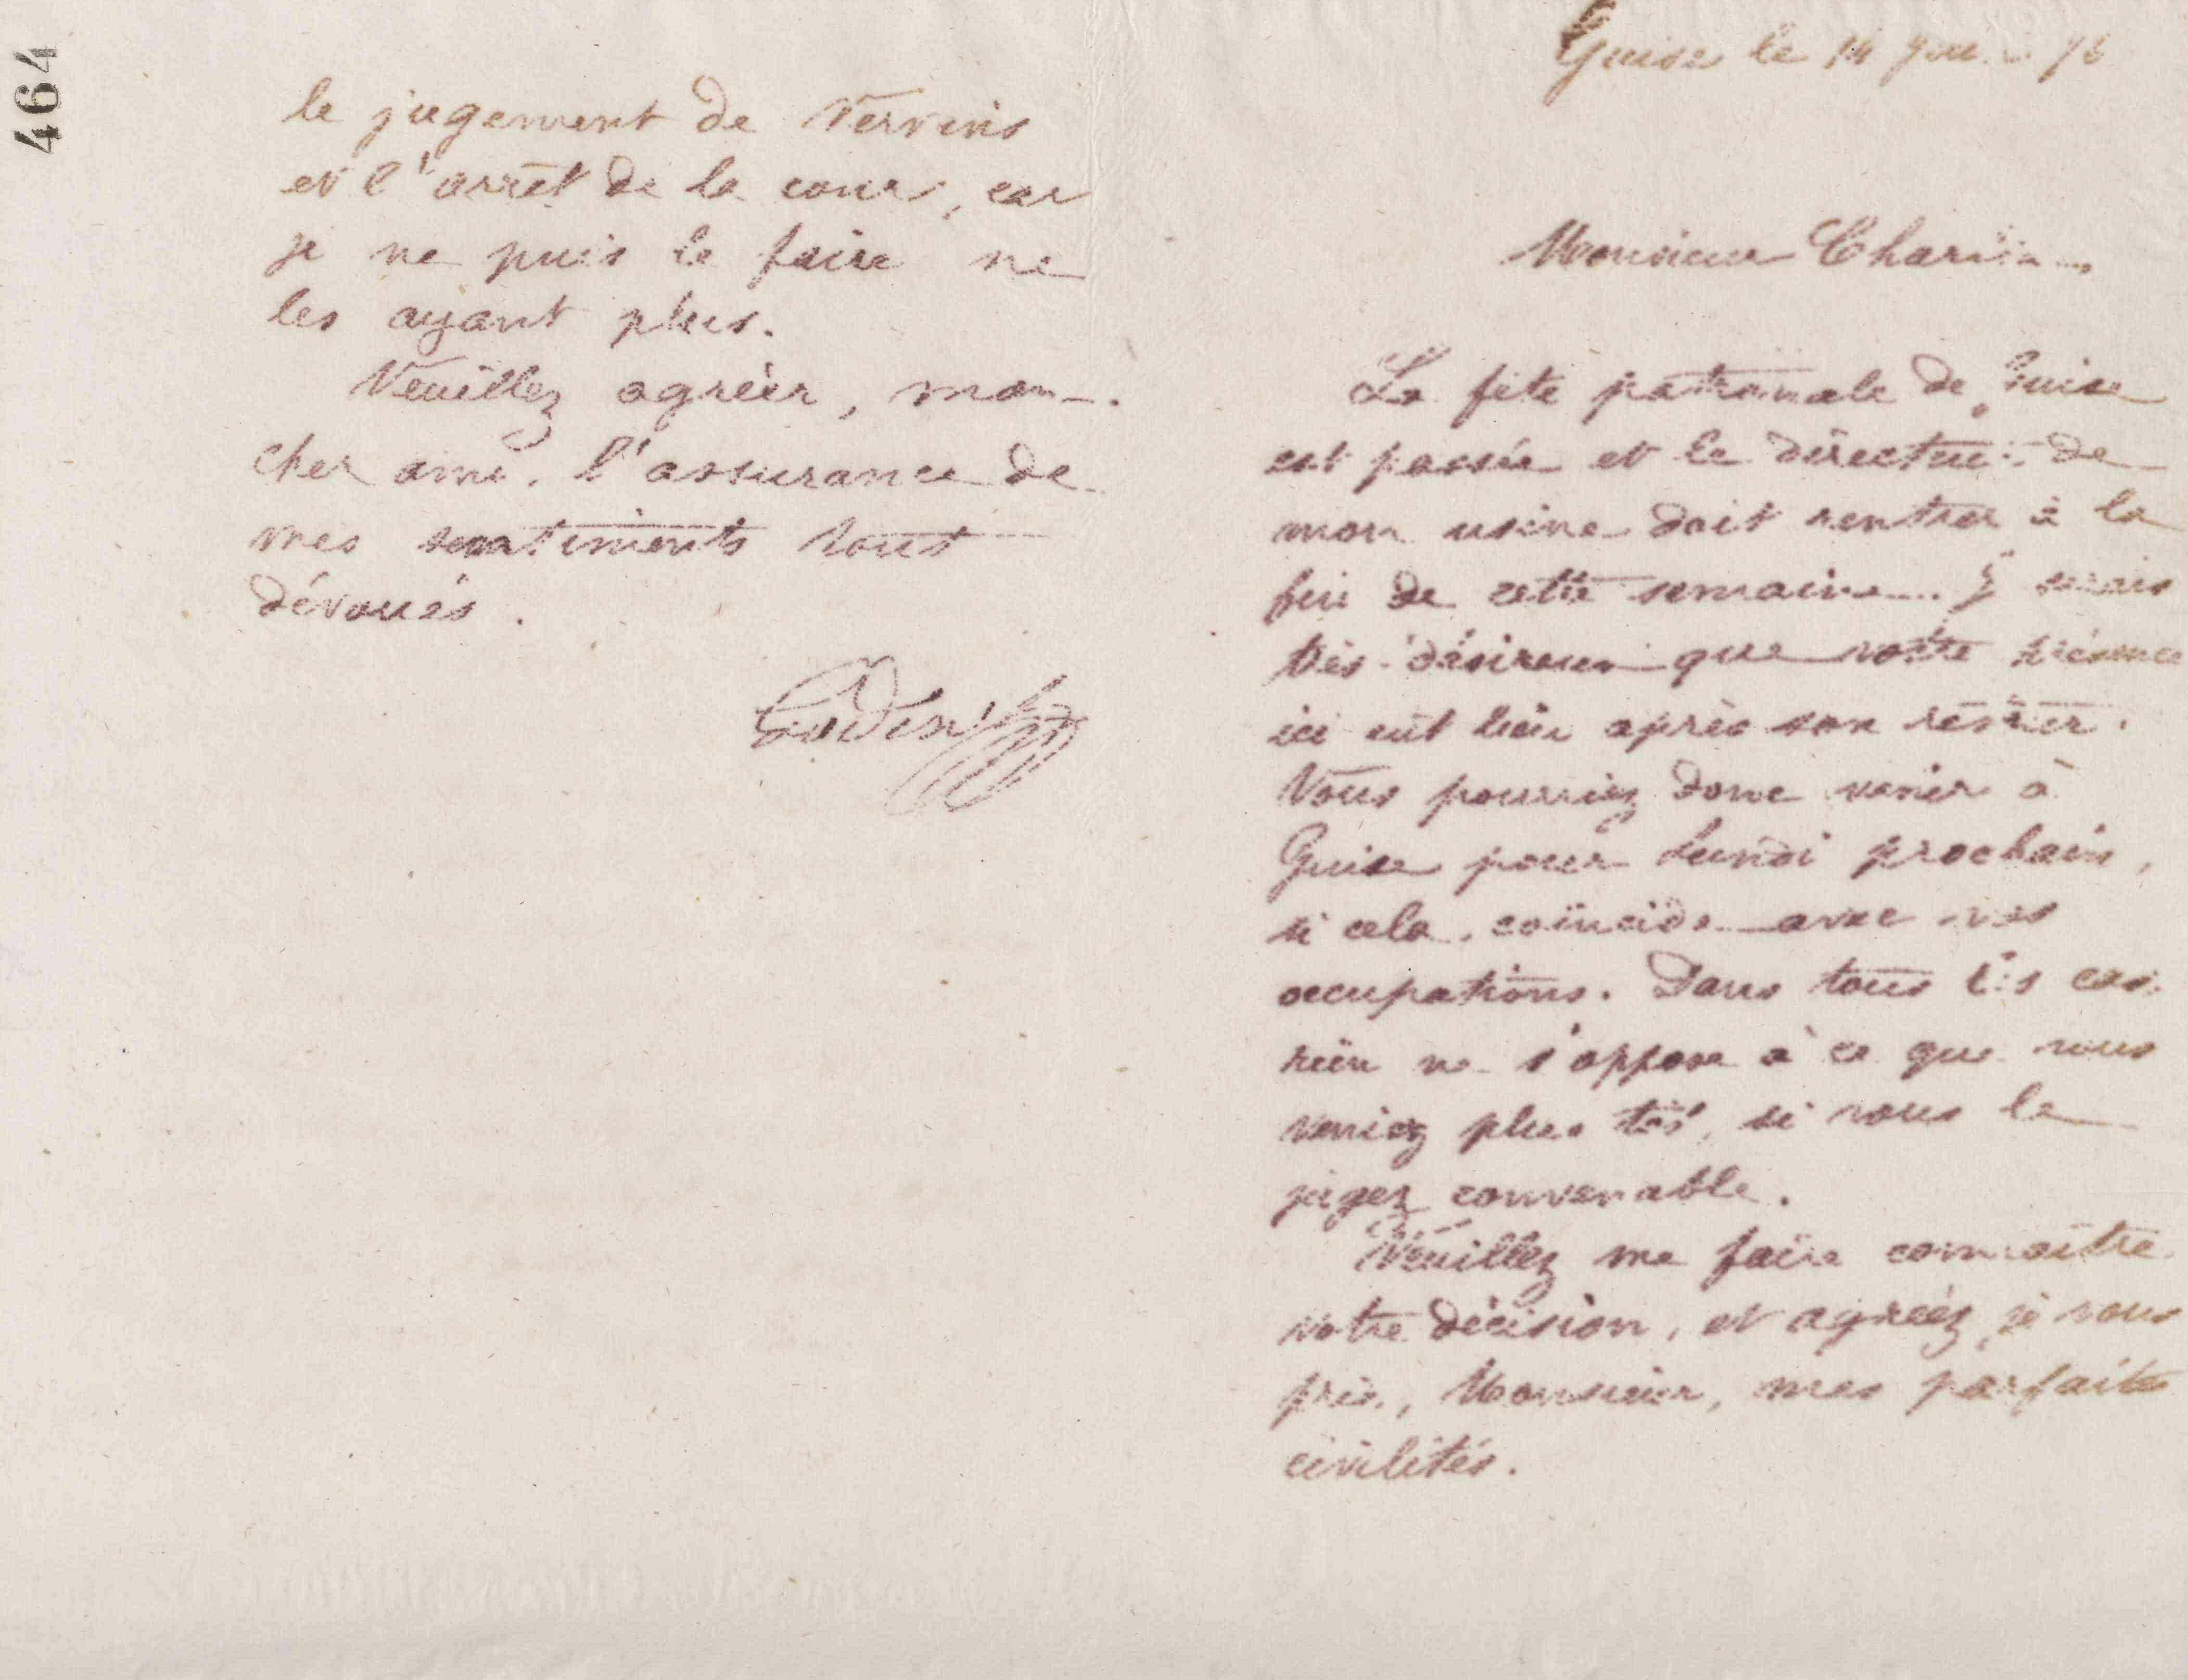 464
le jugement de Vervins
et l'arrêt de la cour, car
je ne puis le faire ne
les ayant plus.
Veuillez agréer, mon
cher ami, l'assurance de
mes sentiments tout
dévoués.
Godin
Guise le 14 76
Monsieur
La fête patronale de Guise
est passée et le directeur de
mon usine doit rentrer à la
fin de cette semaine. Je serais
très désireux que votre présence
ici eut lieu après son
Vous pourriez donc venir à
Guise pour Lundi prochain,
si cela coïncide avec vos
occupations. Dans tous les cas
rien ne s'oppose à ce que vous
veniez plus tôt, si vous le
jugez convenable.
Veuillez me faire connaître
votre décision, et agréez, je vous
prie, Monsieur, mes parfaites
civilités.